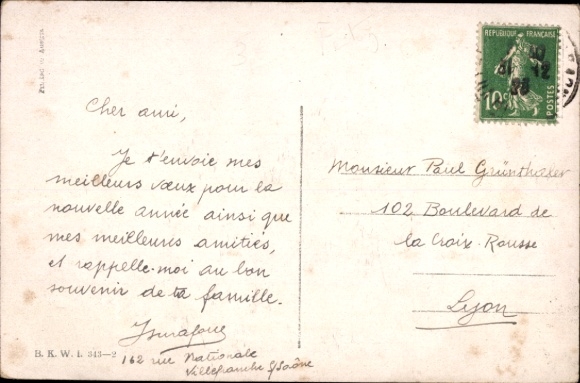 Printed in Austria
Cher ami,
Je t'envoie mes
meilleurs vœux pour la
nouvelle année ainsi que
mes meilleures amitiés,
et rappelle-moi au bon
souvenir de ta famille.
162 rue Nationale
Villefranche s/Saône
B. K. W. I. 343–2
REPUBLIQUE FRANÇAISE
10c
POSTES
31 12
Monsieur Paul Grünthaler
102 Boulevard de
la Croix-Rousse
Lyon